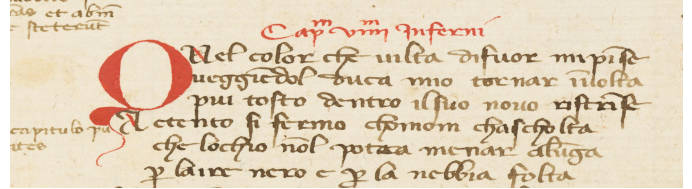 Cap^m viiij^m Inferni
Qvel color che uilta difuor mi pinse
ueggiedol duca mio tornar i uolta
piu tosto dentro il suo nouo ristrinse
Atento si fermo chomom chascholta
che lochio nol potea menar alūga
p laire nero e p la nebbia folta